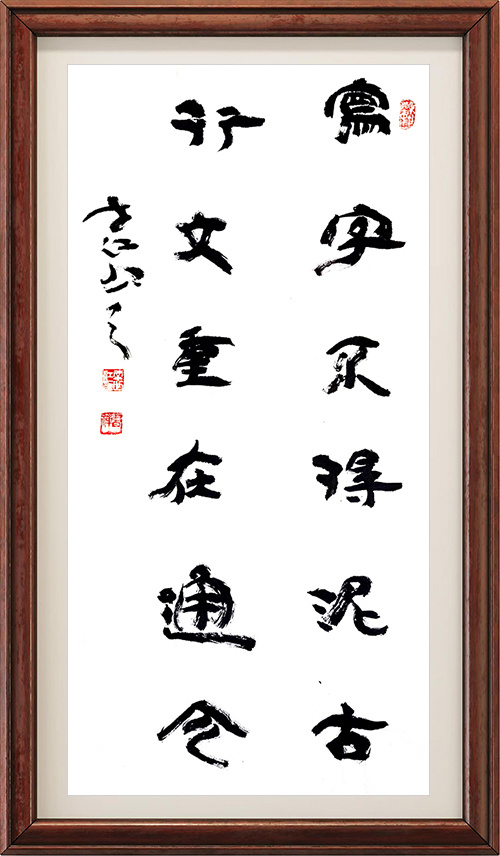 寫字不得泥古
行文重在通今